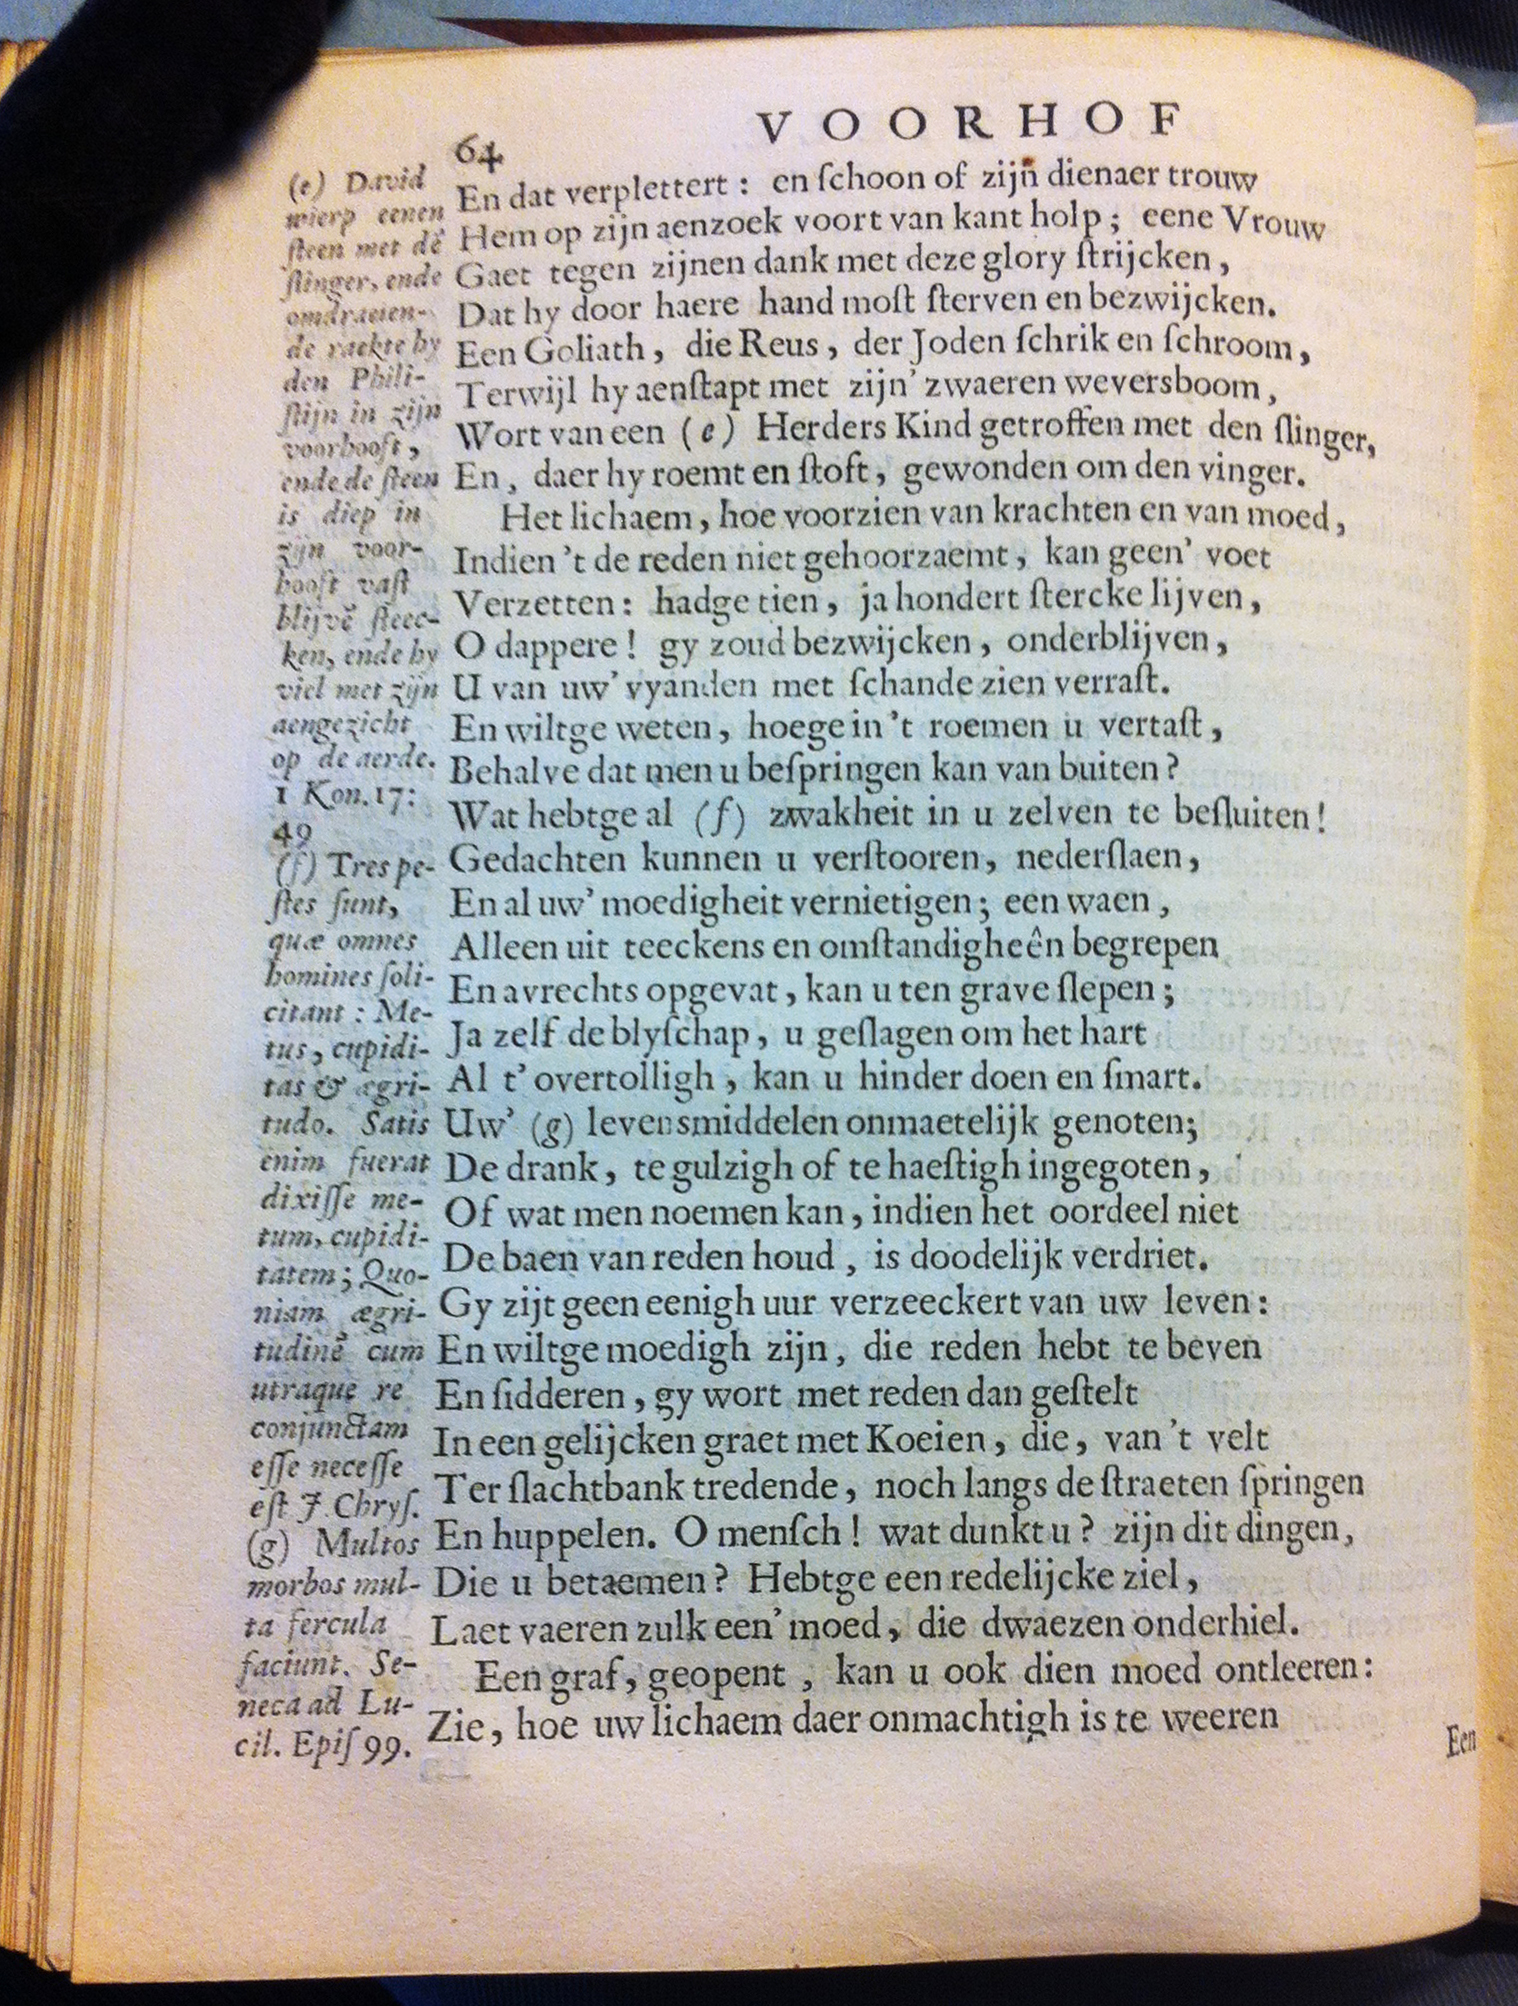 64
VOORHOF
En dat verplettert : en ſchoon of zijn̄ dienaer trouw
Hem op zijn aenzoek voort van kant holp ; eene Vrouw
Gaet tegen zijnen dank met deze glory ſtrijcken ,
Dat hy door haere hand moſt ſterven en bezwijcken.
Een Goliath , die Reus , der Joden ſchrik en ſchroom ,
Terwijl hy aenſtapt met zijn' zwaeren weversboom ,
Wort van een (e) Herders Kind getroffen met den ſlinger,
En , daer hy roemt en ſtoft , gewonden om den vinger.
Het lichaem , hoe voorzien van krachten en van moed ,
Indien 't de reden niet gehoorzaemt , kan geen' voet
Verzetten : hadge tien , ja hondert ſtercke lijven ,
O dappere ! gy zoud bezwijcken , onderblijven ,
U van uw' vyanden met ſchande zien verraſt.
En wiltge weten , hoege in 't roemen u vertaſt ,
Behalve dat men u beſpringen kan van buiten ?
Wat hebtge al (f) zwakheit in u zelven te beſluiten !
Gedachten kunnen u verſtooren , nederſlaen ,
En al uw' moedigheit vernietigen ; een waen ,
Alleen uit teeckens en omſtandigheên begrepen
En avrechts opgevat , kan u ten grave ſlepen ;
Ja zelf de blyſchap , u geſlagen om het hart
Al t' overtolligh , kan u hinder doen en ſmart.
Uw' (g) levensmiddelen onmaetelijk genoten;
De drank , te gulzigh of te haeſtigh ingegoten ,
Of wat men noemen kan , indien het oordeel niet
De baen van reden houd , is doodelijk verdriet.
Gy zijt geen eenigh uur verzeeckert van uw leven :
En wiltge moedigh zijn , die reden hebt te beven
En ſidderen , gy wort met reden dan geſtelt
In een gelijcken graet met Koeien , die , van 't velt
Ter ſlachtbank tredende , noch langs de ſtraeten ſpringen
En huppelen. O menſch ! wat dunkt u ? zijn dit dingen ,
Die u betaemen ? Hebtge een redelijcke ziel ,
Laet vaeren zulk een' moed , die dwaezen onderhiel.
Een graf , geopent , kan u ook dien moed ontleeren :
Zie , hoe uw lichaem daer onmachtigh is te weeren
Een
(e) David
wierp eenen
ſteen met dē
ſlinger, ende
omdraeien-
de raekte hy
den Phili-
ſtijn in zijn
voorhooft ,
ende de ſteen
is diep in
zijn voor-
hooft vaſt
blijvē ſteec-
ken, ende hy
viel met zijn
aengezicht
op de aerde.
1 Kon. 17:
49
(f) Tres pe-
ſtes ſunt,
quæ omnes
homines ſoli-
citant : Me-
tus, cupidi-
tas & ægri-
tudo. Satis
enim fuerat
dixiſſe me-
tum, cupidi-
tatem ; Quo-
niam ægri-
tudinē cum
utraque re
conjunctam
eſſe neceſſe
eſt J. Chryſ.
(g) Multos
morbos mul-
ta fercula
faciunt. Se-
neca ad Lu-
cil. Epiſ 99.